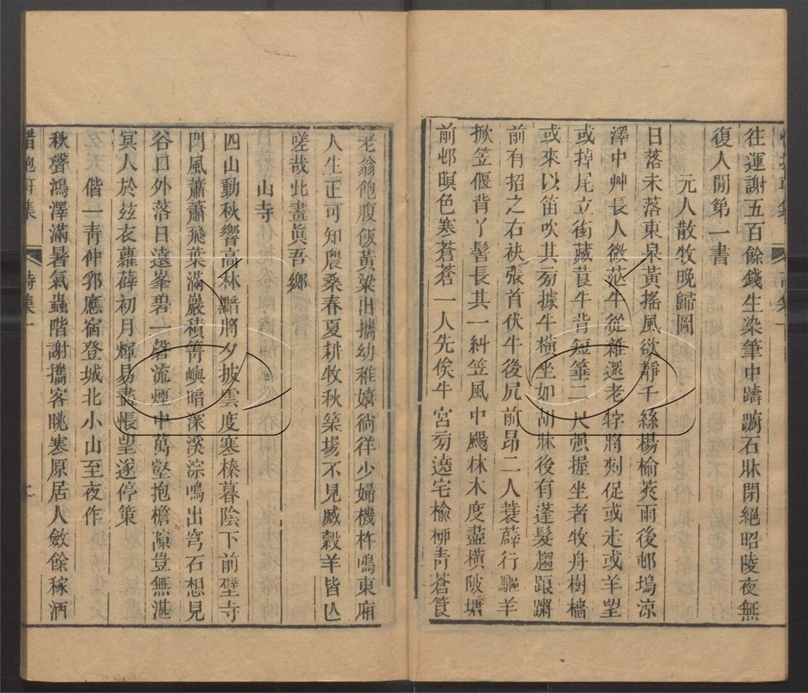 往運謝五百餘錢生染筆中躊躕石牀閉絕昭陵夜無
復人閒第一書
元人散牧晚歸圖
日落未落東臯黃搖風欲靜千絲楊榆莢雨後邨塢涼
澤中艸長人微茫牛從雜遝老牸將刺促或走或羊望
或掉尾立銜藏莨牛背短箠二尺强握坐者牧舟樹檣
或來以笛吹其旁據牛橫坐如胡牀後有蓬髮趨踉蹡
前有招之右袂張首伏牛後尻前昂二人蓑薜行驅羊
掀笠偃背丫髻長其一糾笠風中颺林木度盡橫陂塘
前邨暝色寒蒼蒼一人先俟牛宮旁遶宅榆栁青蒼筤
老翁飽腹飯黃粱出攜幼稚嬉徜徉少婦機杼鳴東廂
人生正可知農桑春夏耕牧秋築場不見臧穀羊皆亾
嗟哉此畫眞吾鄉
山寺
四山動秋響高林黯將夕披雲度寒榛暮陰下前壁寺
門風蕭蕭飛葉滿巖積箐嶼暗深溪淙鳴出穹石想見
谷口外落日遠峯碧一磬流煙中萬壑抱檐隙豈無湛
冥人於玆衣蘿薜初月輝易盡悵望遂停策
偕一靑仲郛應宿登城北小山至夜作
秋聲鴻澤滿暑氣蟲階謝攜客眺寒原居人斂餘稼酒
惜抱軒集 詩集一